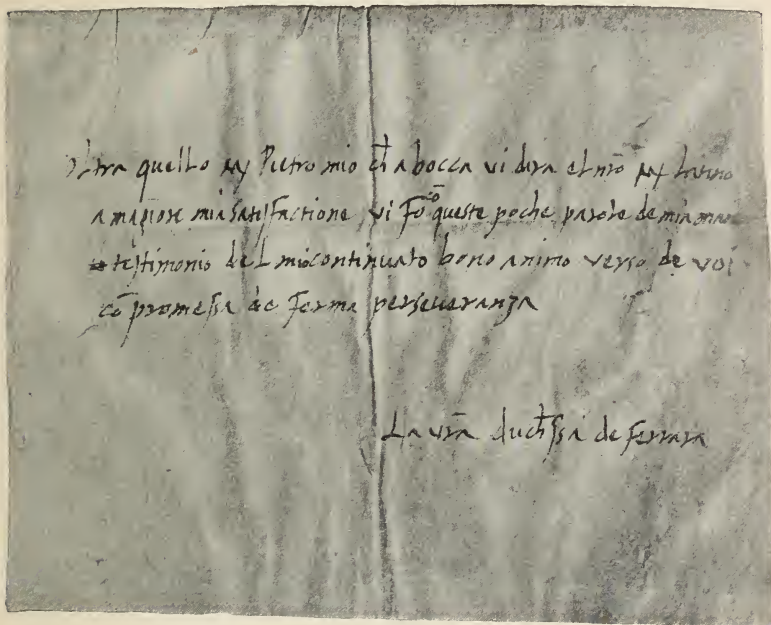 oltra quello mẏ Pietro mio ch̄ a bocca vi dira el nr̄o mẏ
a magiore mia satisfactione vi fo cō queste poche parole de mia mano
testimonio del mio continuato bono animo verso de voi
cō promessa de ferma perseveranza
La vr̄a duch̄ssa de ferrara